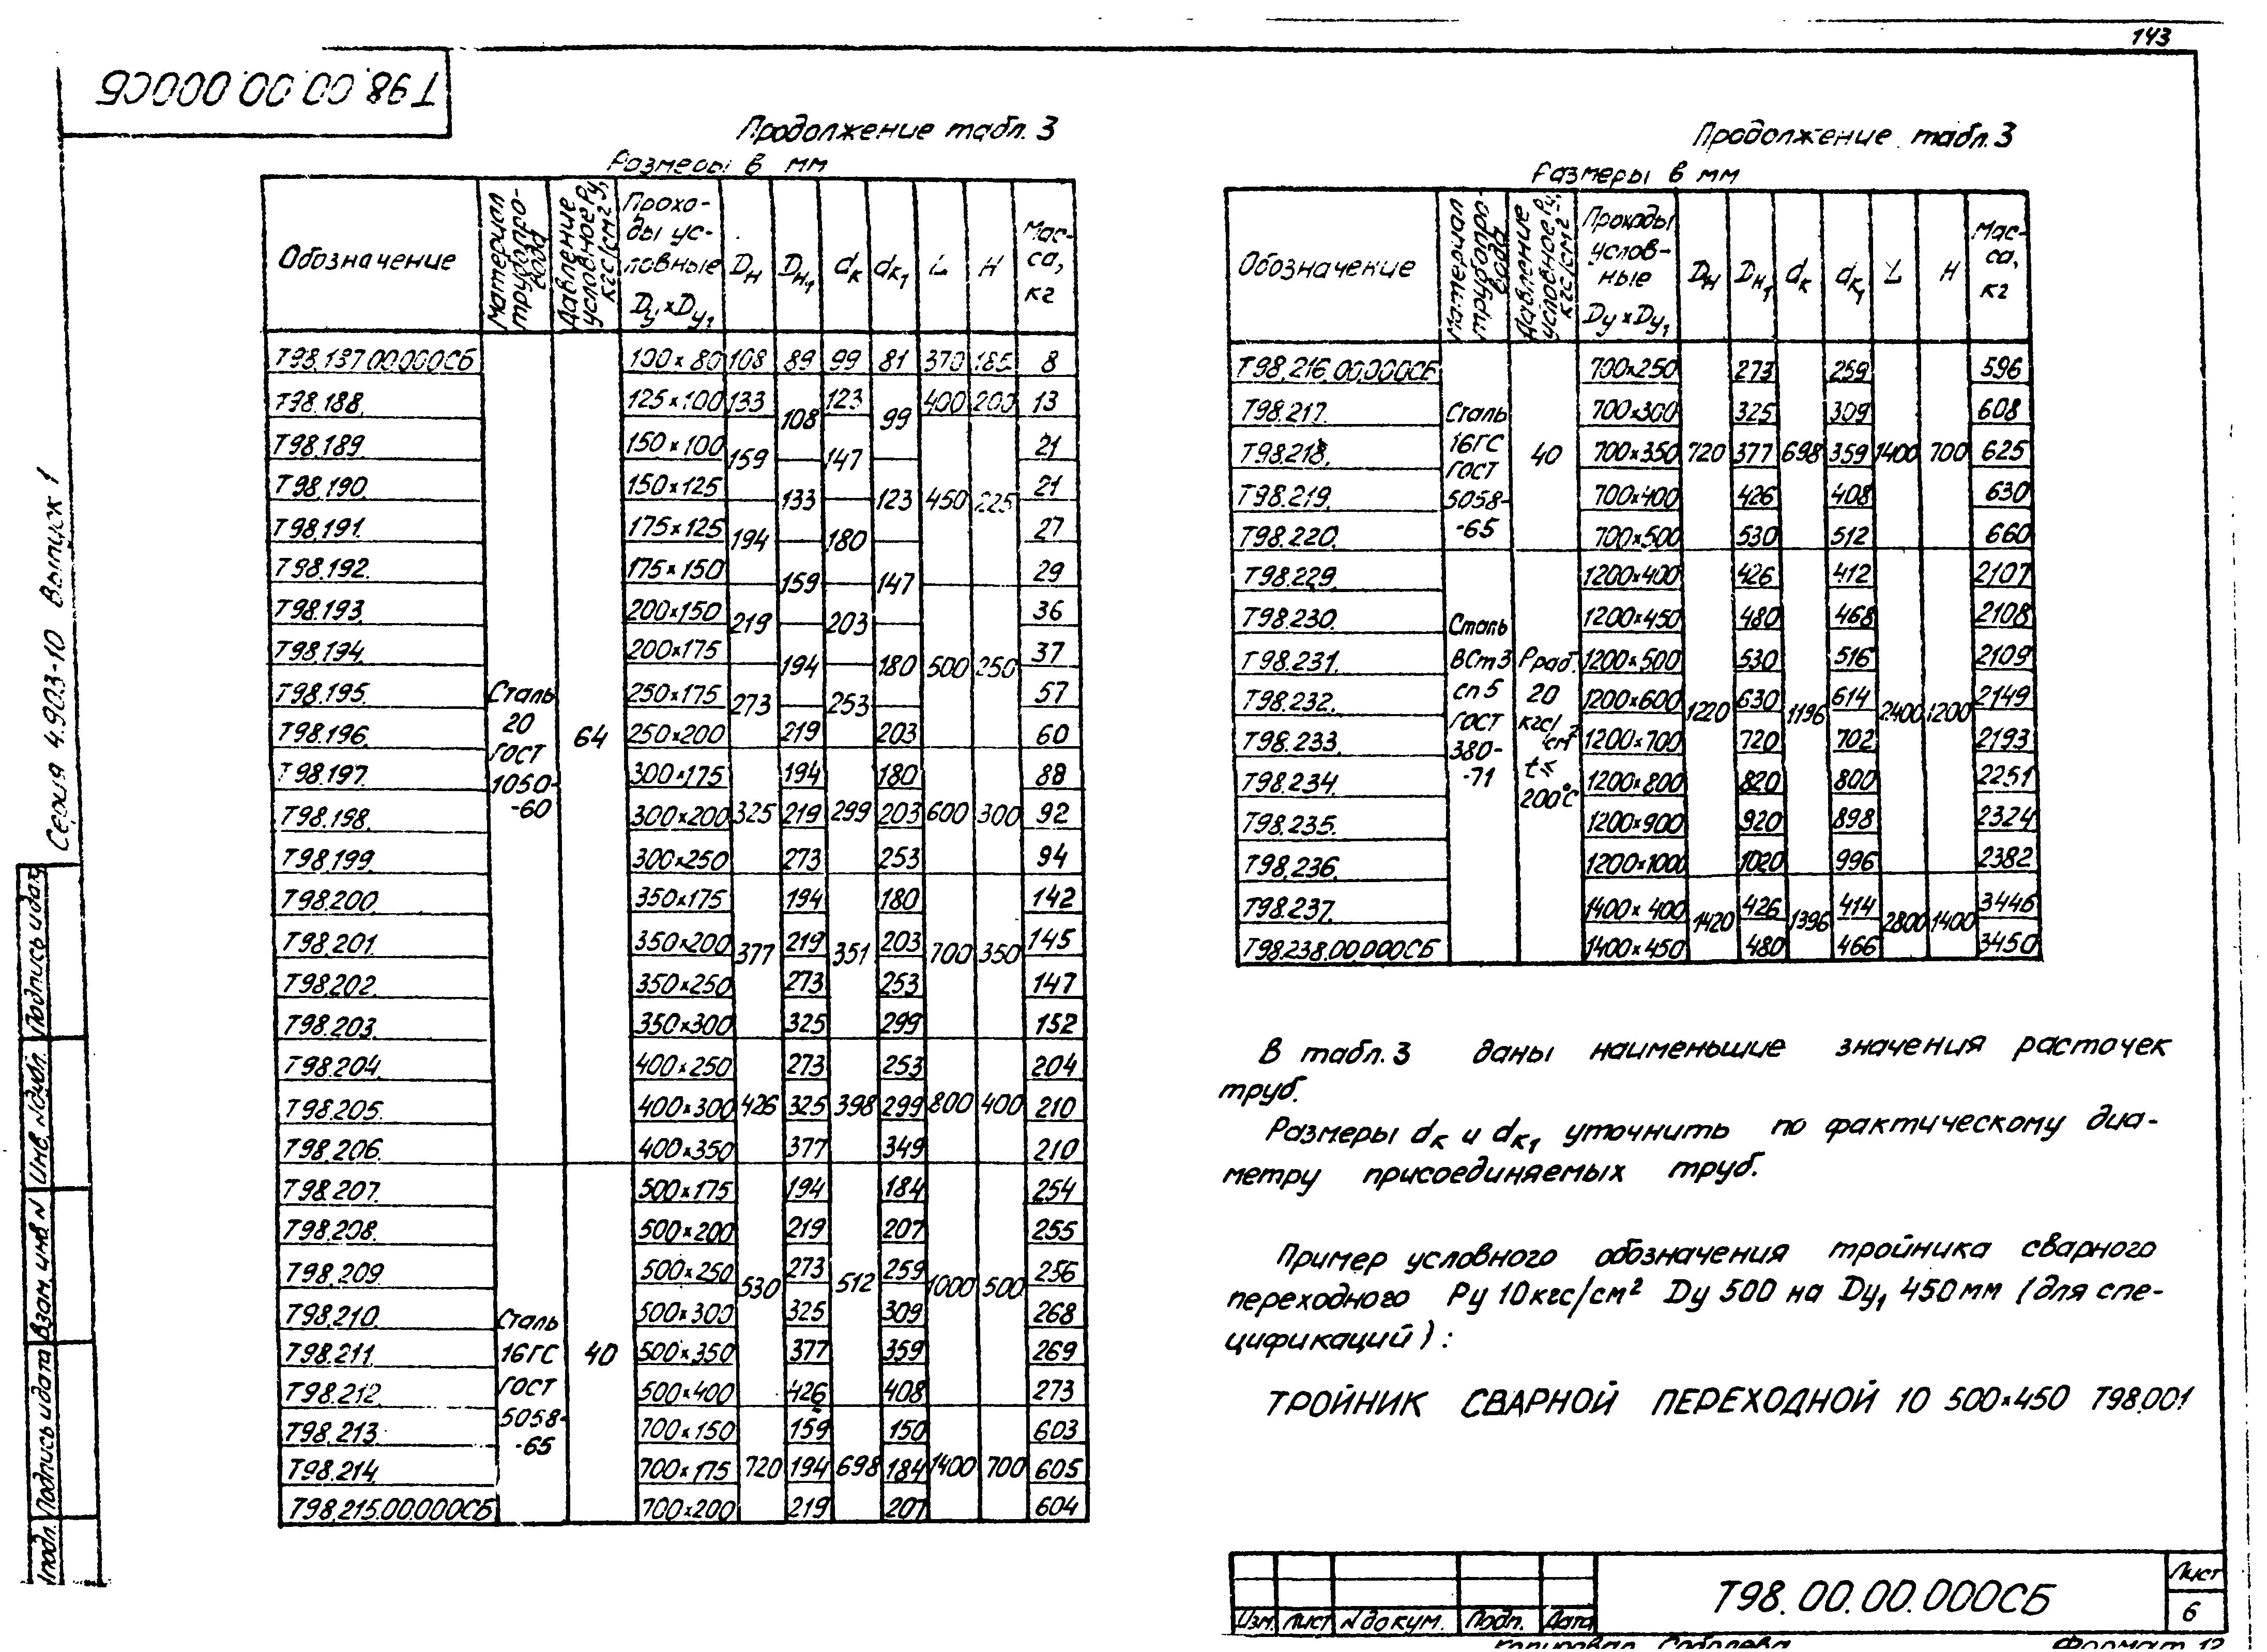 143
Т98.00.00.000СБ
Серия 4.903-10 Выпуск 1
Продолжение табл. 3
Размеры в мм
Обозначение | Материал трубопровода | Давление условное Ру, кгс/см² | Проходы условные Dу×Dу₁ | Dн | Dн₁ | dк | dк₁ | L | H | Масса, кг
Т98.137.00.000СБ | Сталь 20 ГОСТ 1050-60 | 64 | 100×80 | 108 | 89 | 99 | 81 | 370 | 185 | 8
Т98.188. | 125×100 | 133 | 108 | 123 | 99 | 400 | 200 | 13
Т98.189. | 150×100 | 159 | 147 | 21
Т98.190. | 150×125 | 133 | 123 | 450 | 225 | 21
Т98.191. | 175×125 | 194 | 180 | 27
Т98.192. | 175×150 | 159 | 147 | 29
Т98.193. | 200×150 | 219 | 203 | 36
Т98.194. | 200×175 | 194 | 180 | 500 | 250 | 37
Т98.195. | 250×175 | 273 | 253 | 57
Т98.196. | 250×200 | 219 | 203 | 60
Т98.197. | 300×175 | 194 | 180 | 88
Т98.198. | 300×200 | 325 | 219 | 299 | 203 | 600 | 300 | 92
Т98.199. | 300×250 | 273 | 253 | 94
Т98.200. | 350×175 | 194 | 180 | 142
Т98.201. | 350×200 | 377 | 219 | 351 | 203 | 700 | 350 | 145
Т98.202. | 350×250 | 273 | 253 | 147
Т98.203. | 350×300 | 325 | 299 | 152
Т98.204. | 400×250 | 273 | 253 | 204
Т98.205. | 400×300 | 426 | 325 | 398 | 299 | 800 | 400 | 210
Т98.206. | 400×350 | 377 | 349 | 210
Т98.207. | Сталь 16ГС ГОСТ 5058-65 | 40 | 500×175 | 194 | 184 | 254
Т98.208. | 500×200 | 219 | 207 | 255
Т98.209 | 500×250 | 530 | 273 | 512 | 259 | 1000 | 500 | 256
Т98.210. | 500×300 | 325 | 309 | 268
Т98.211. | 500×350 | 377 | 359 | 269
Т98.212. | 500×400 | 426 | 408 | 273
Т98.213. | 700×150 | 159 | 150 | 603
Т98.214. | 700×175 | 720 | 194 | 698 | 184 | 1400 | 700 | 605
Т98.215.00.000СБ | 700×200 | 219 | 207 | 604
Продолжение табл. 3
Размеры в мм
Обозначение | Материал трубопровода | Давление условное Ру, кгс/см² | Проходы условные Dу×Dу₁ | Dн | Dн₁ | dк | dк₁ | L | H | Масса, кг
Т98.216.00.000СБ | Сталь 16ГС ГОСТ 5058-65 | 40 | 700×250 | 273 | 259 | 596
Т98.217. | 700×300 | 325 | 309 | 608
Т98.218. | 700×350 | 720 | 377 | 698 | 359 | 1400 | 700 | 625
Т98.219. | 700×400 | 426 | 408 | 630
Т98.220. | 700×500 | 530 | 512 | 660
Т98.229. | Сталь ВСт3сп5 ГОСТ 380-71 | Рраб. 20 кгс/см² t≤200°С | 1200×400 | 426 | 412 | 2107
Т98.230. | 1200×450 | 480 | 468 | 2108
Т98.231. | 1200×500 | 530 | 516 | 2109
Т98.232. | 1200×600 | 1220 | 630 | 1196 | 614 | 2400 | 1200 | 2149
Т98.233. | 1200×700 | 720 | 702 | 2193
Т98.234. | 1200×800 | 820 | 800 | 2251
Т98.235. | 1200×900 | 920 | 898 | 2324
Т98.236. | 1200×1000 | 1020 | 996 | 2382
Т98.237. | 1400×400 | 1420 | 426 | 1396 | 414 | 2800 | 1400 | 3446
Т98.238.00.000СБ | 1400×450 | 480 | 466 | 3450
В табл. 3 даны наименьшие значения расточек
труб.
Размеры dк и dк₁ уточнить по фактическому диа-
метру присоединяемых труб.
Пример условного обозначения тройника сварного
переходного Ру 10кгс/см² Dу 500 на Dу₁ 450мм (для спе-
цификаций):
ТРОЙНИК СВАРНОЙ ПЕРЕХОДНОЙ 10 500×450 Т98.001
Изм. Лист N докум. Подп. Дата
Т98.00.00.000СБ
Лист
6
Копировал Соболева
Формат 12
подл. Подпись и дата Взам. инв N Инв. N дубл. Подпись и дата